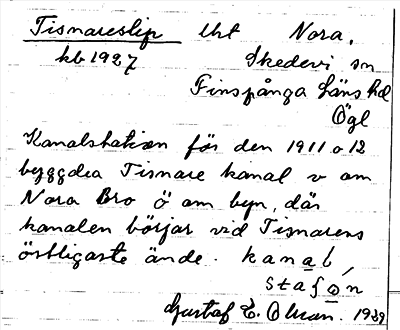 Tisnareslip Uht Nora,
kb 1927 Skedevi sn
Finspånga läns hd
Ögl
Kanalstation för den 1911 o 12
byggda Tisnare kanal v om
Nora Bro ö om byn, där
kanalen börjar vid Tisnarens
östligaste ände. kanal,
station
Gustaf E. Olson. 1939